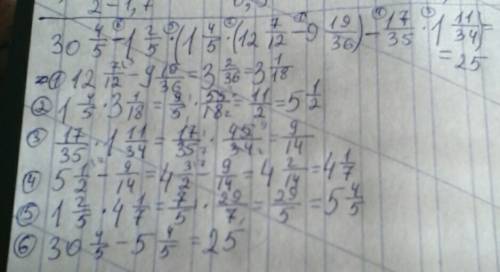 2 - 1,7
30 4/5 - 1 2/5 · (1 4/5 · (12 7/12 - 9 19/36) - 17/35 · 1 11/34) =
= 25
① 12 7/12 - 9 19/36 = 3 2/36 = 3 1/18
② 1 4/5 · 3 1/18 = 9/5 · 55/18 = 11/2 = 5 1/2
③ 17/35 · 1 11/34 = 17/35 · 45/34 = 9/14
④ 5 1/2 - 9/14 = 4 3/2 - 9/14 = 4 2/14 = 4 1/7
⑤ 1 2/5 · 4 1/7 = 7/5 · 29/7 = 29/5 = 5 4/5
⑥ 30 4/5 - 5 4/5 = 25